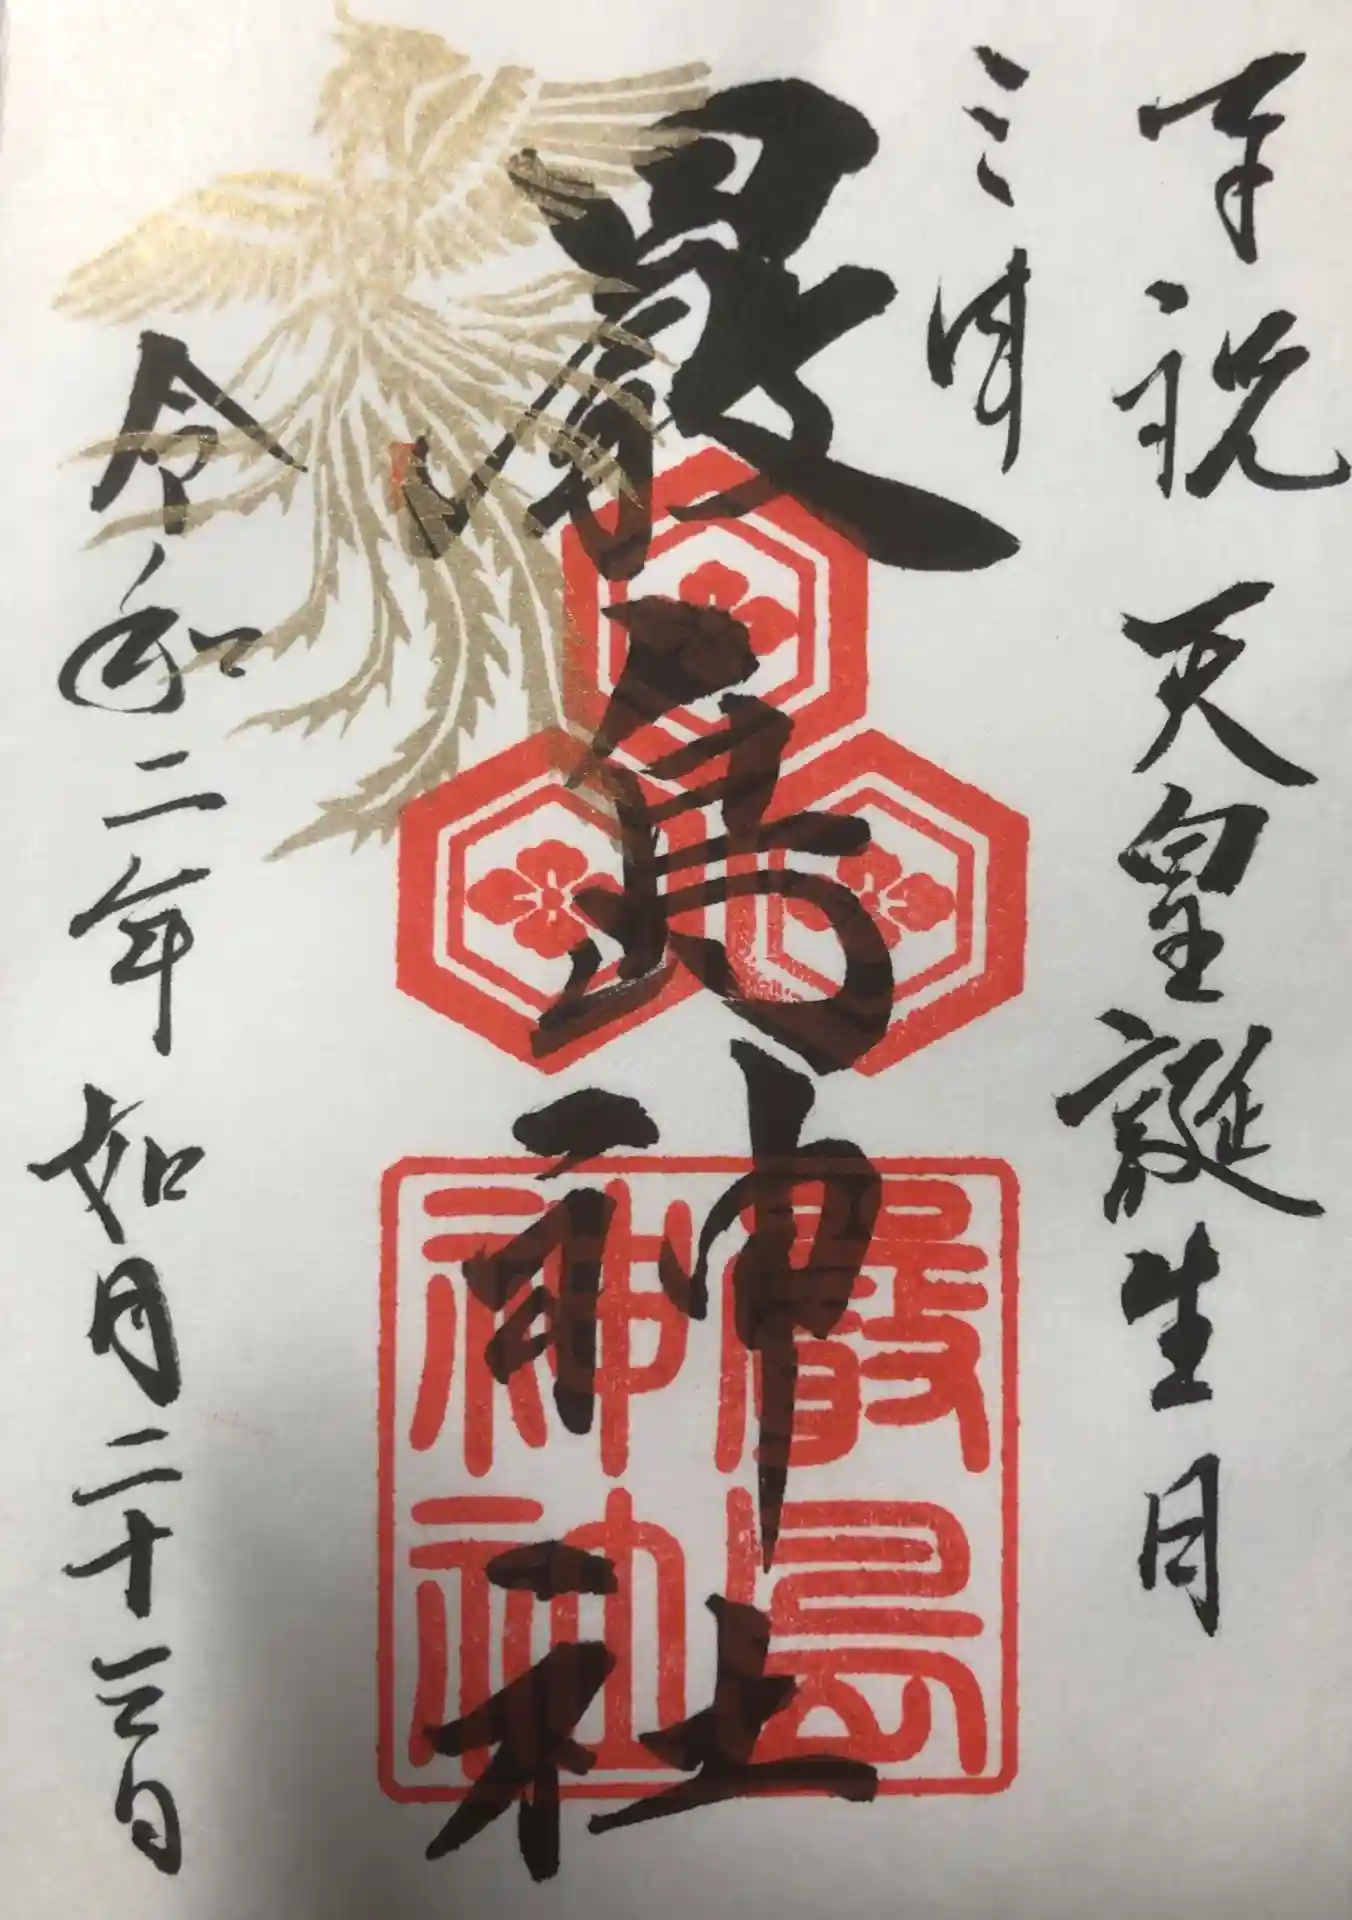 奉祝 天皇誕生日
三津
厳島神社
令和二年 如月二十三日
嚴島
神社